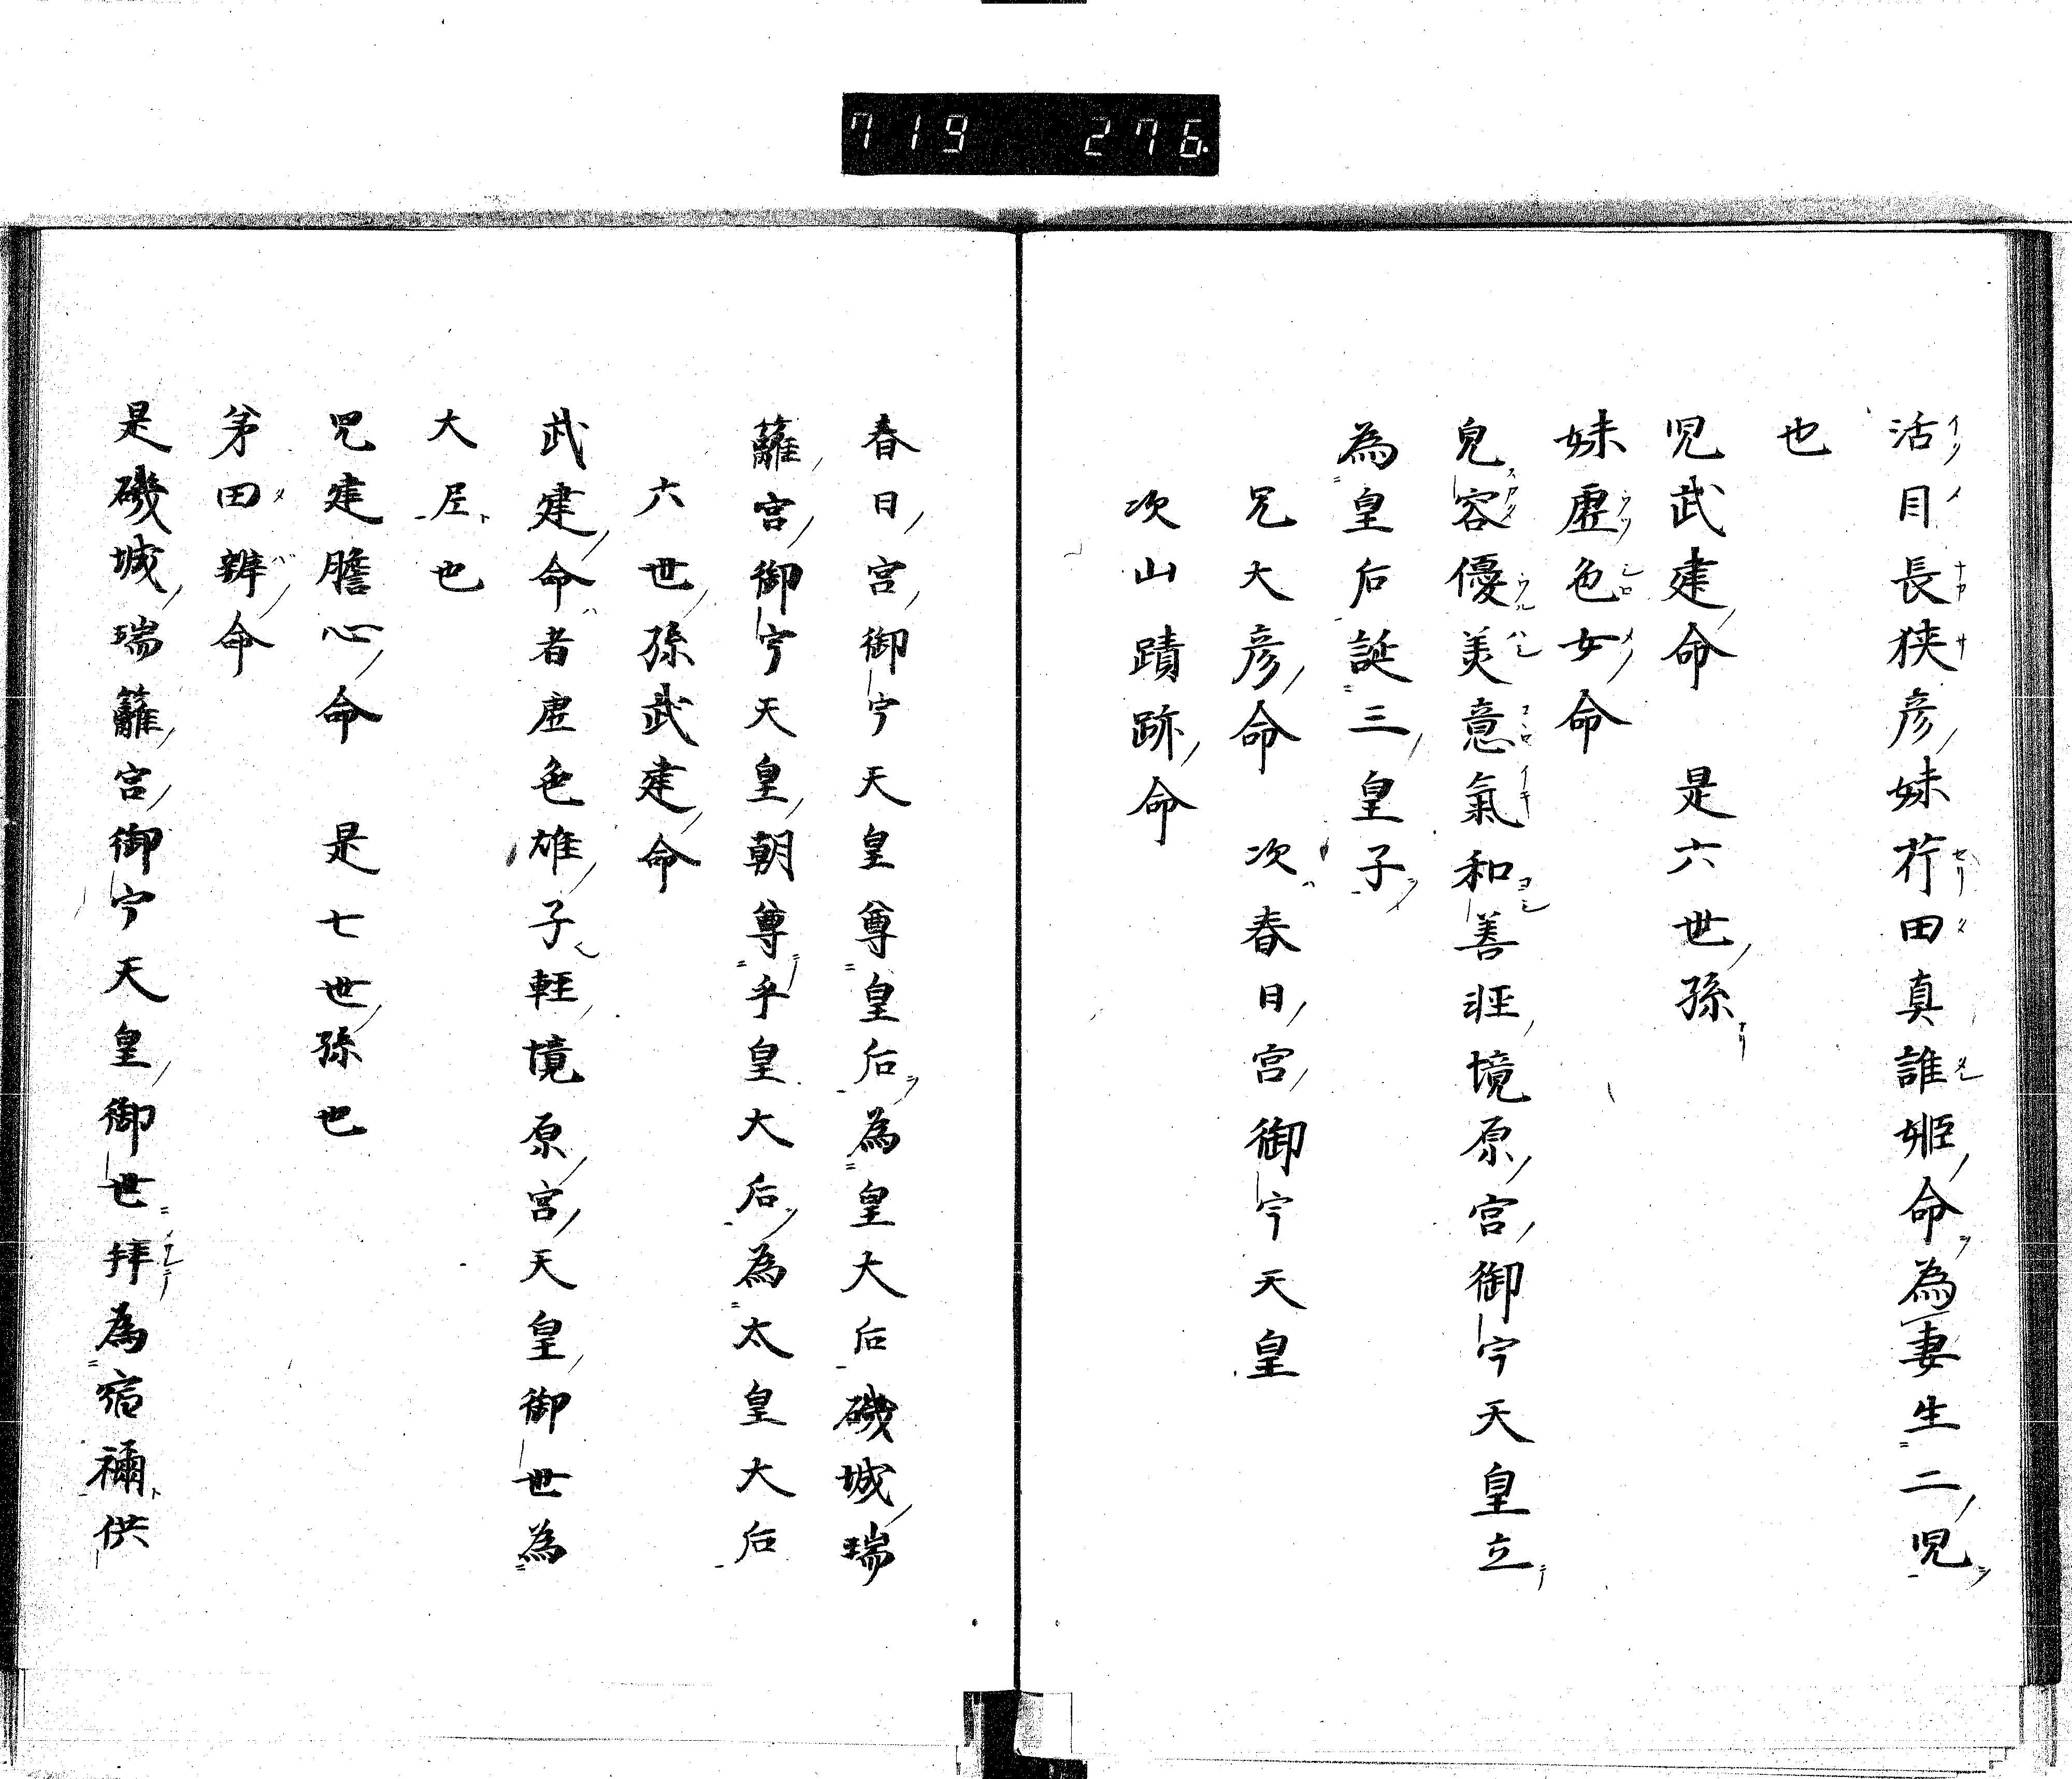 719 276
活目長狭彦妹荇田真誰姫命為妻生二児
也
児武建命 是六世孫
妹虚色女命
皃容優美意氣和善軽境原宮御宇天皇立
為皇后誕三皇子
兄大彦命 次春日宮御宇天皇
次山蹟跡命
春日宮御宇天皇尊皇后為皇大后磯城瑞
籬宮御宇天皇朝尊乎皇大后為太皇大后
六世孫武建命
武建命者虚色雄子軽境原宮天皇御世為
大尼也
児建膽心命 是七世孫也
弟田辨命
是磯城瑞籬宮御宇天皇御世拝為宿禰供